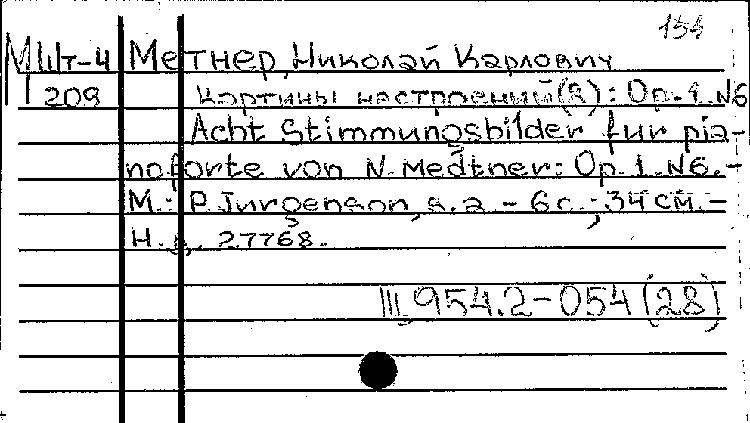 154
МШт-4 Метнер, Николай Карлович
209 Картины настроений (8): Op. 1. N6
Acht Stimmungsbilder fur pia-
noforte von N. Medtner: Op. 1. N6. -
М.: P. Jurgenson, s. a. - 6 с.; 34 см. -
Н. д. 27768.
III, 954.2-054 (28)